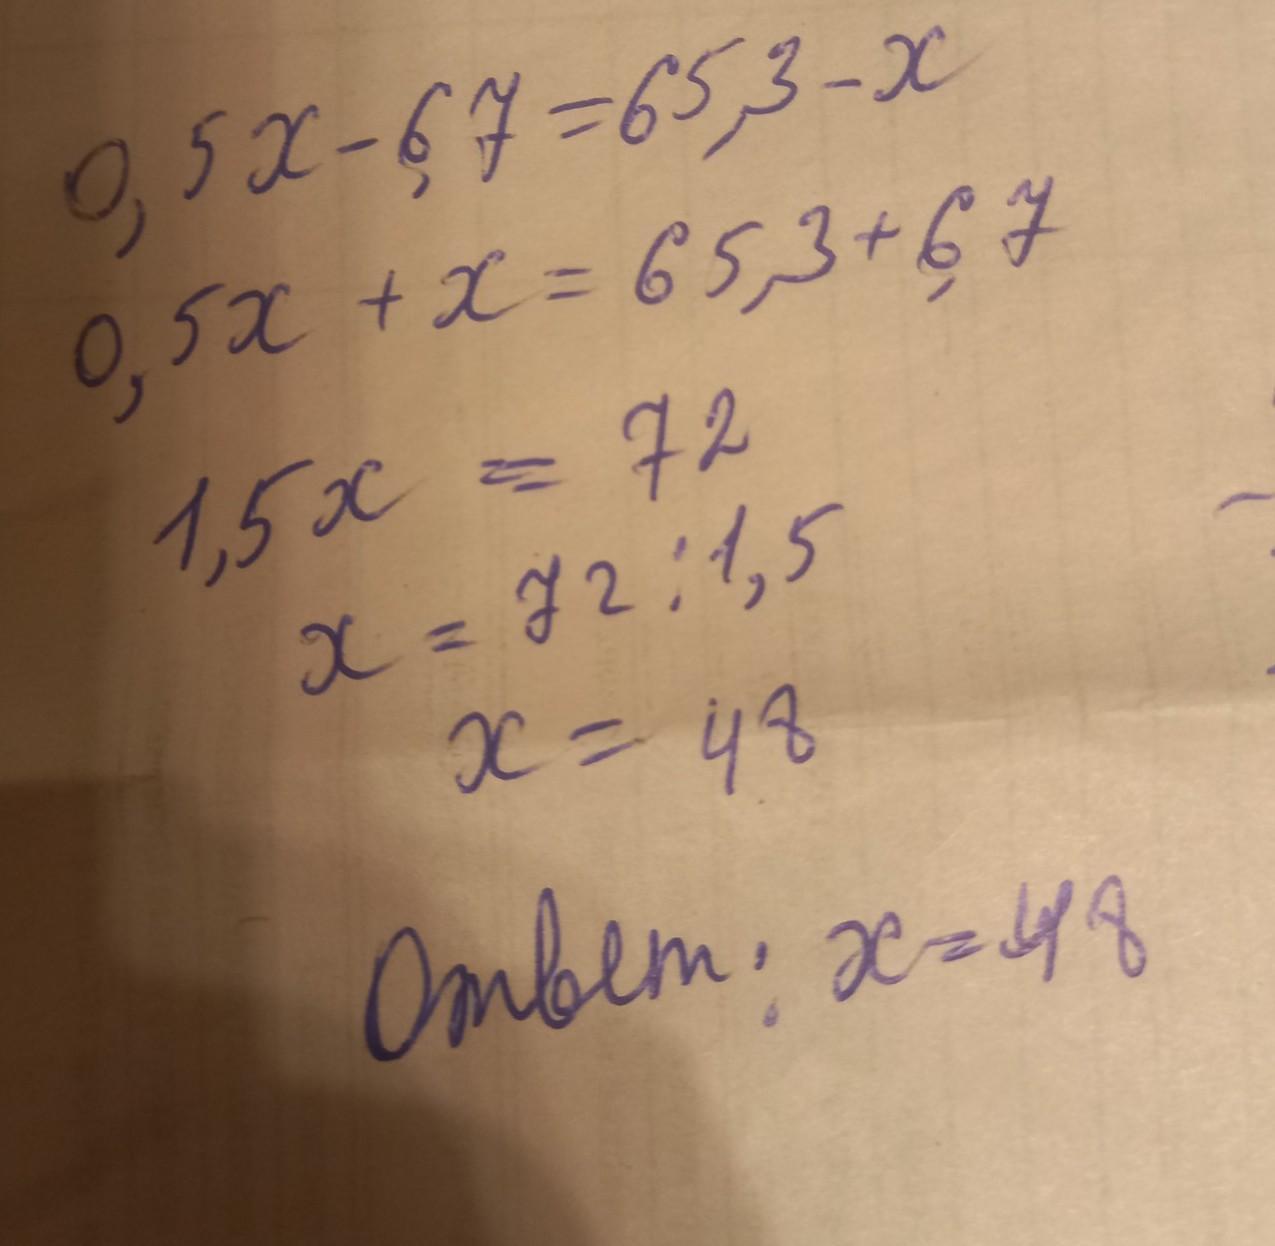 0,5x-6,7=65,3-x
0,5x+x=65,3+6,7
1,5x=72
x=72:1,5
x=48
Ответ: x=48